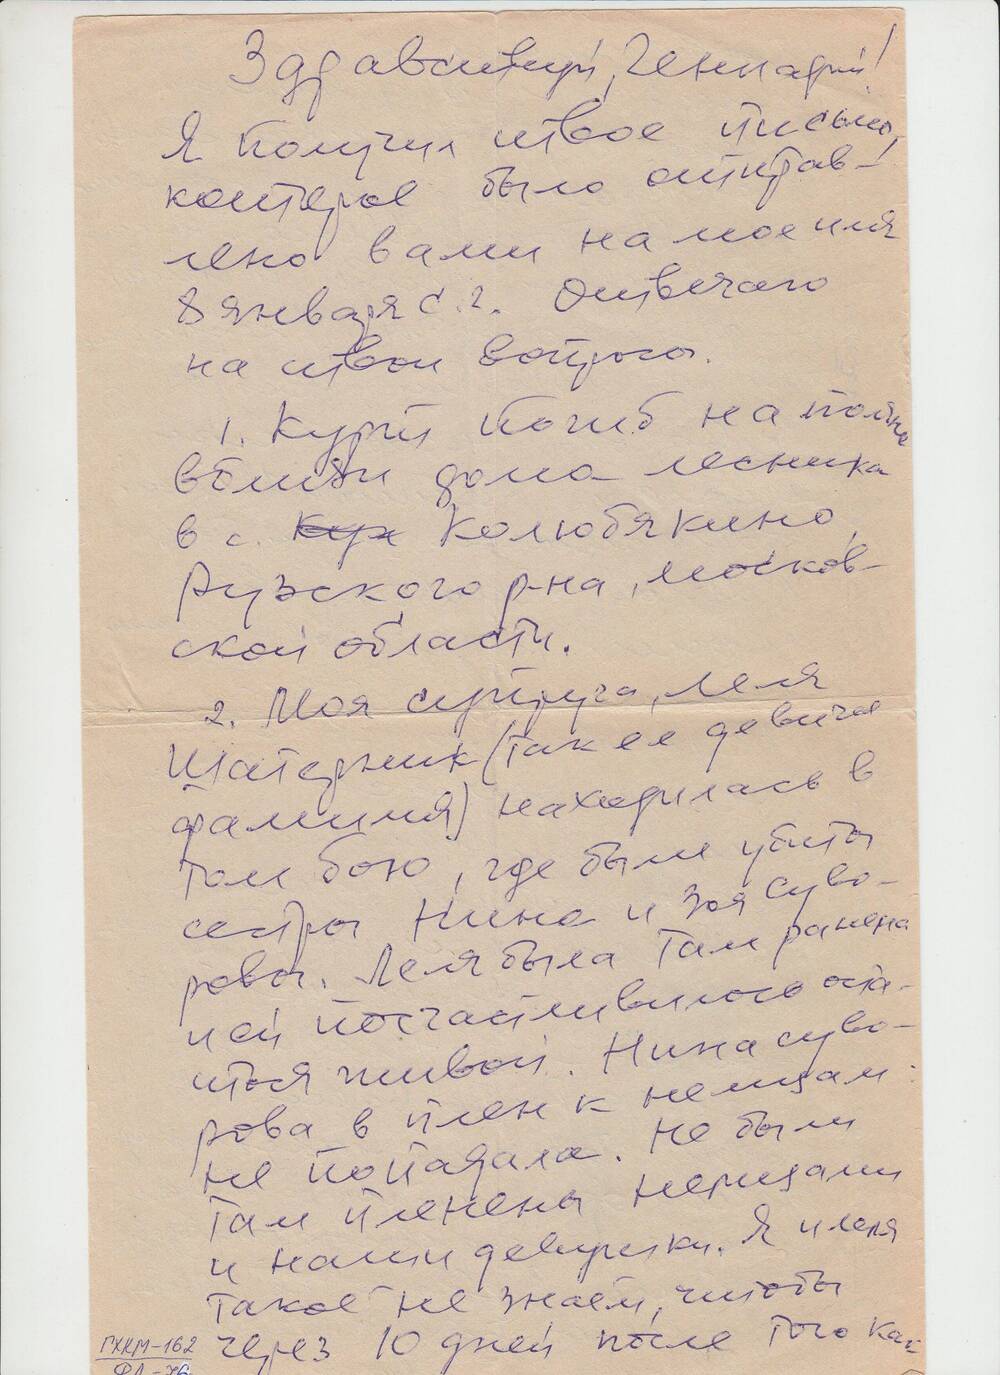 Здравствуй, Геннадий!
Я получил твое письмо,
которое было отправ-
лено вами на мое имя
8 января с.г. Отвечаю
на твои вопросы.
1. Курт погиб на поляне
вблизи дома лесника
в с. Колюбякино,
Рузского р-на, Москов-
ской области.
2. Моя супруга, Леля
Шатерник (так ее девичья
фамилия) находилась в
том бою, где были убиты
сестры Нина и Зоя Суво-
ровы. Леля была там ранена
и ей посчастливилось оста-
ться живой. Нина Суво-
рова в плен к немцам
не попадала. Не были
там пленены немцами
и наши девушки. Я и Леля
такое не знаем, чтобы
через 10 дней после того как
ГХКМ-162
ФЛ-76